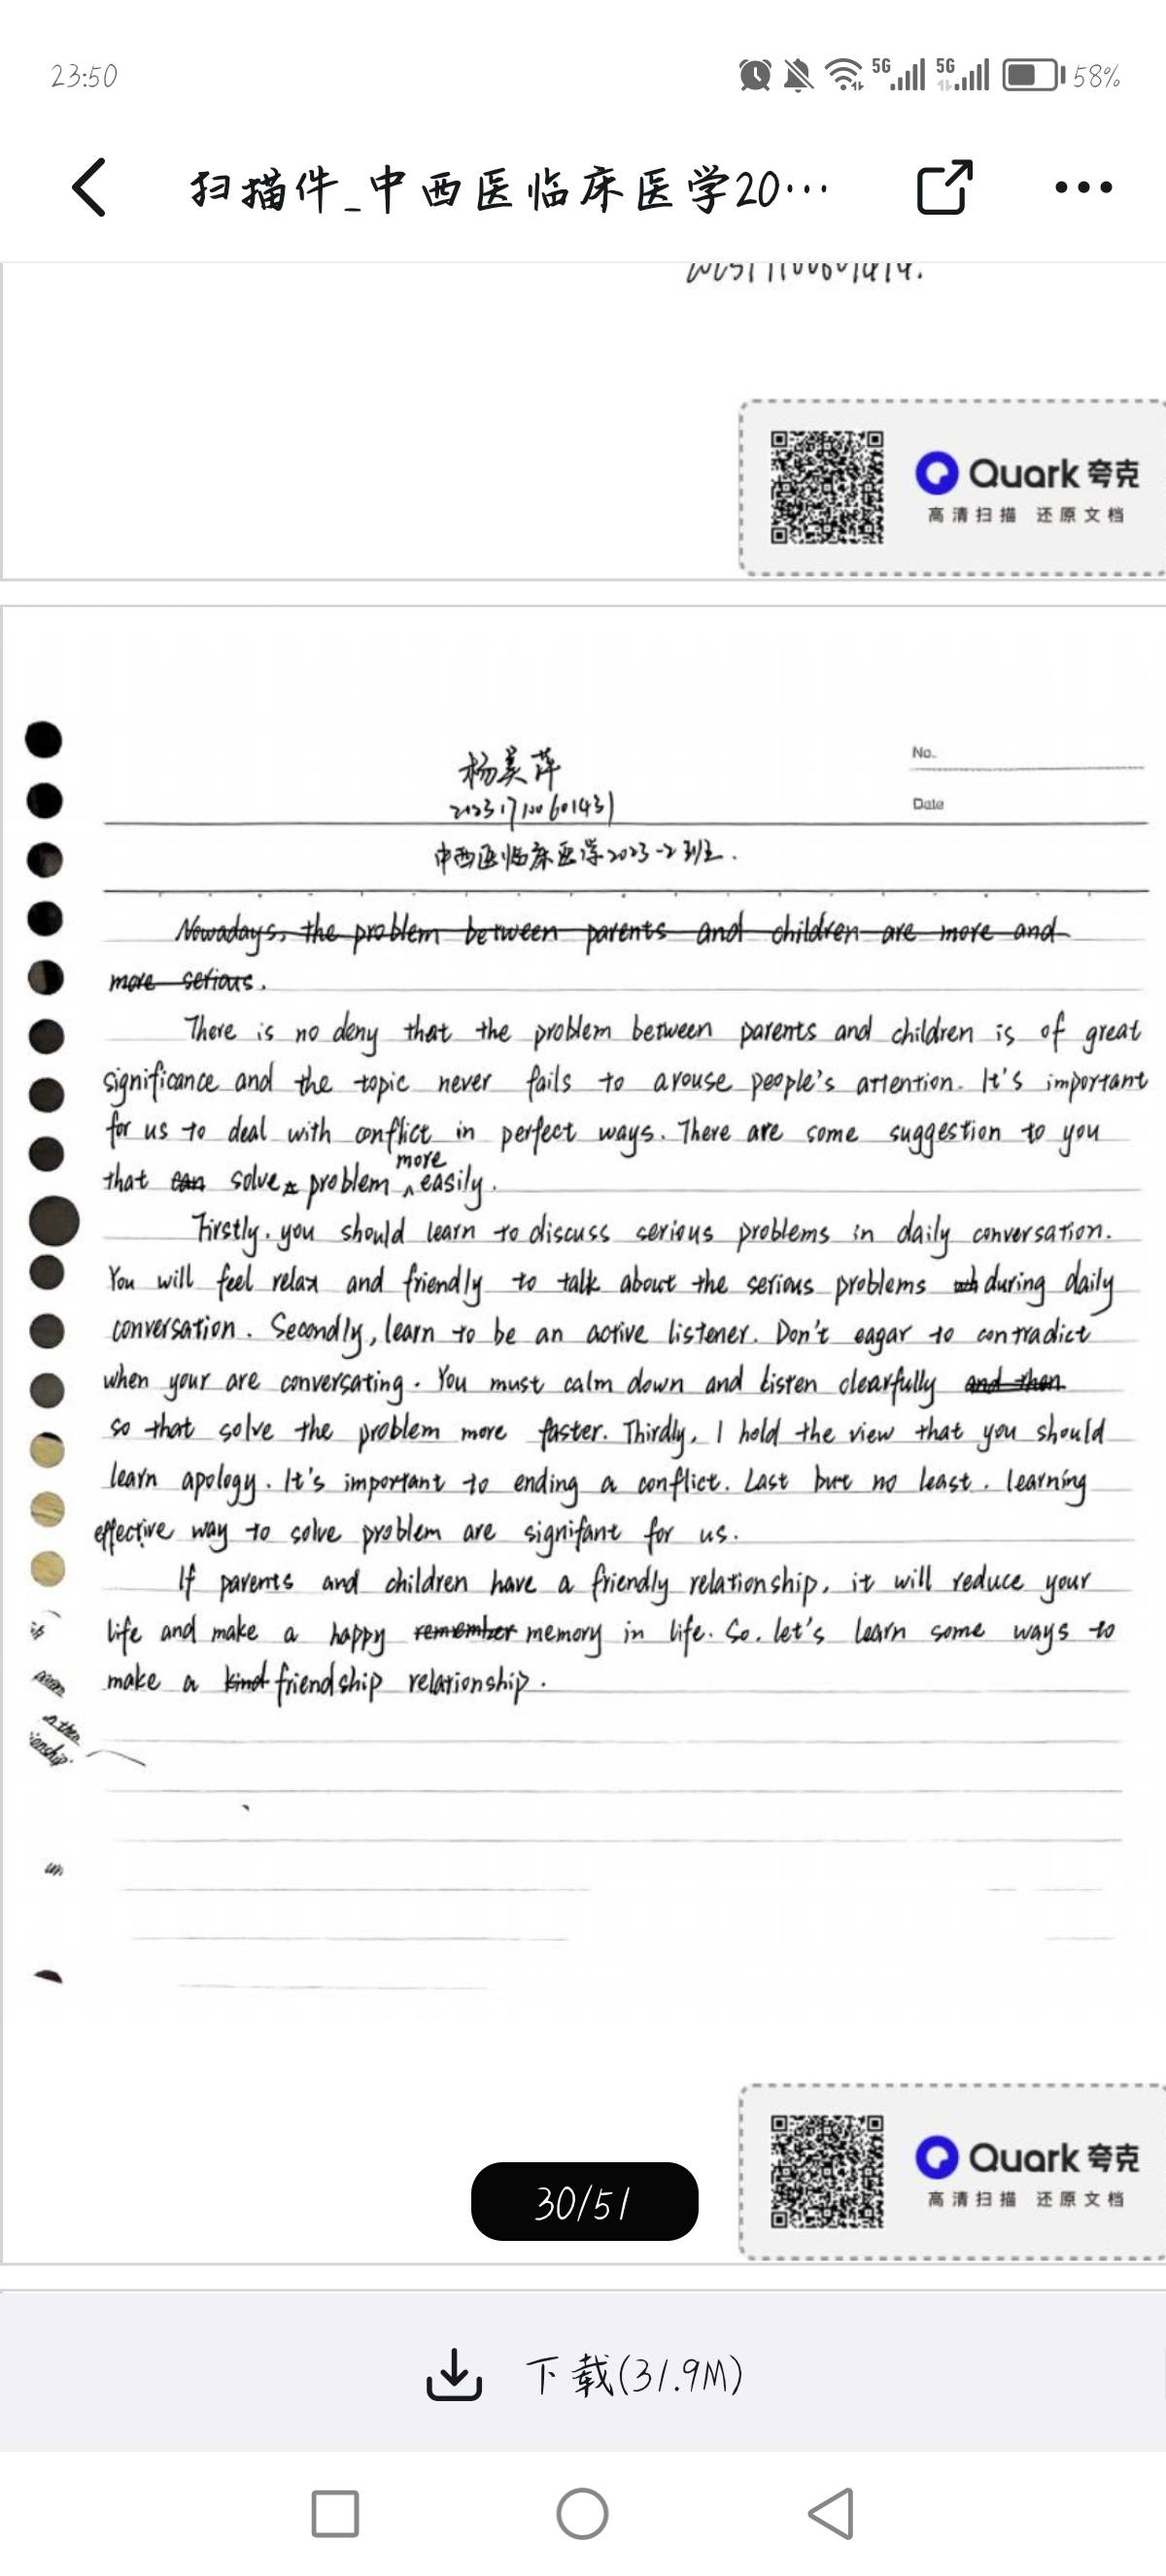 23:50
5G 5G 58%
扫描件_中西医临床医学20…
Quark 夸克
高清扫描 还原文档
No.
杨美萍
202317100601431
Date
中西医临床医学2023-2班.
Nowadays, the problem between parents and children are more and
more serious.
There is no deny that the problem between parents and children is of great
significance and the topic never fails to arouse people's attention. It's important
for us to deal with conflict in perfect ways. There are some suggestion to you
that can solve problem more easily.
Firstly, you should learn to discuss serious problems in daily conversation.
You will feel relax and friendly to talk about the serious problems during daily
conversation. Secondly, learn to be an active listener. Don't eagar to contradict
when your are conversating. You must calm down and listen clearfully and then
so that solve the problem more faster. Thirdly, I hold the view that you should
learn apology. It's important to ending a conflict. Last but no least, learning
effective way to solve problem are signifant for us.
If parents and children have a friendly relationship, it will reduce your
life and make a happy remember memory in life. So, let's learn some ways to
make a kind friendship relationship.
Quark 夸克
高清扫描 还原文档
30/51
下载(31.9M)